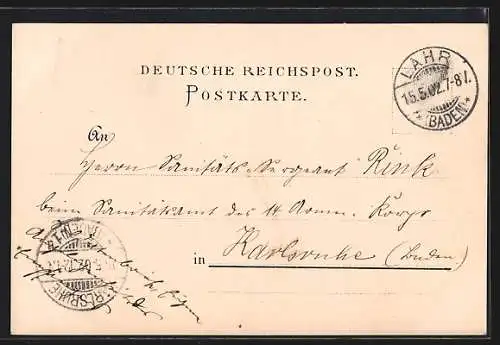 DEUTSCHE REICHSPOST.
POSTKARTE.
LAHR
15.5.02.7-8V.
*(BADEN)*
An
Herrn Sanitäts-Sergeant Rink
beim Sanitätsamt des 14 Armee-Korps
in Karlsruhe (Baden)
KARLSRUHE